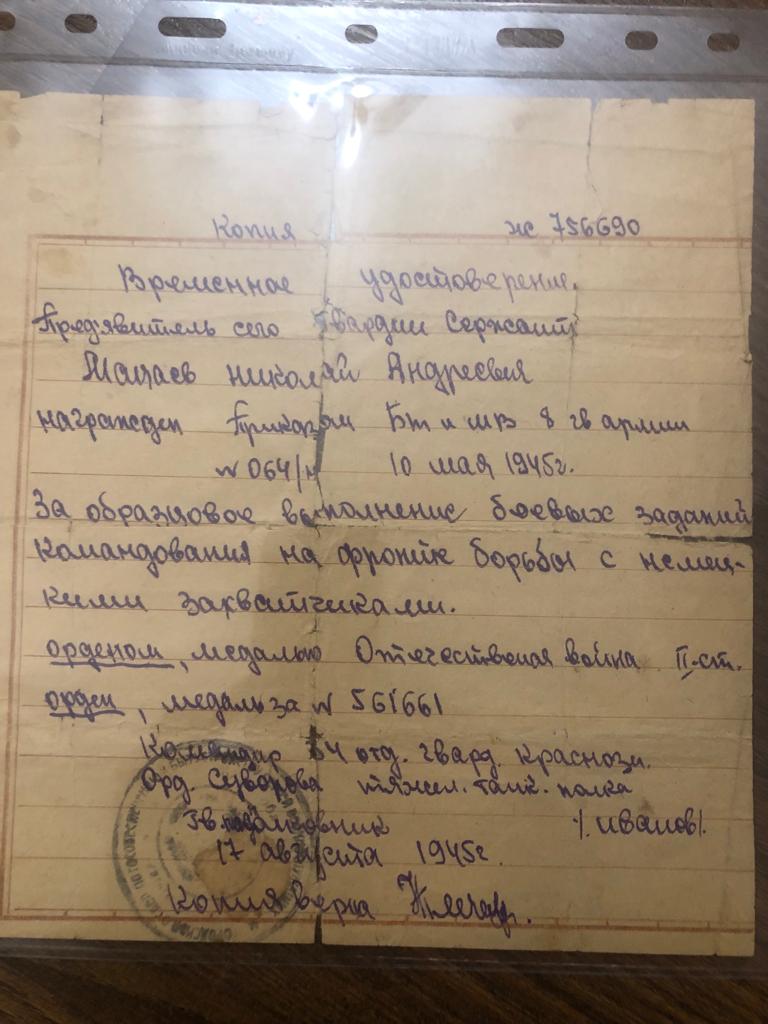 Копия ж 756690
Временное удостоверение.
Пред'явитель сего Гвардии Сержант
Николай Андреевич
награжден Приказом Бт и МВ 8 гв армии
№ 064/н 10 мая 1945г.
За образцовое выполнение боевых заданий
командования на фронте борьбы с немец-
кими захватчиками.
орденом, медалью Отечественная война II-ст.
орден, медаль за № 561661
Командир 34 отд. гвард. Краснозн.
Орд. Суворова тяжел. танк. полка
Гв. подполковник /. Иванов/.
17 августа 1945г.
Копия верна